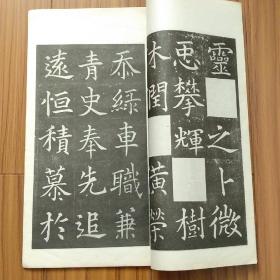 靈之卜微
攀輝樹
木閏黃榮
忝綠車職兼
青史奉先追
遠恒積慕於